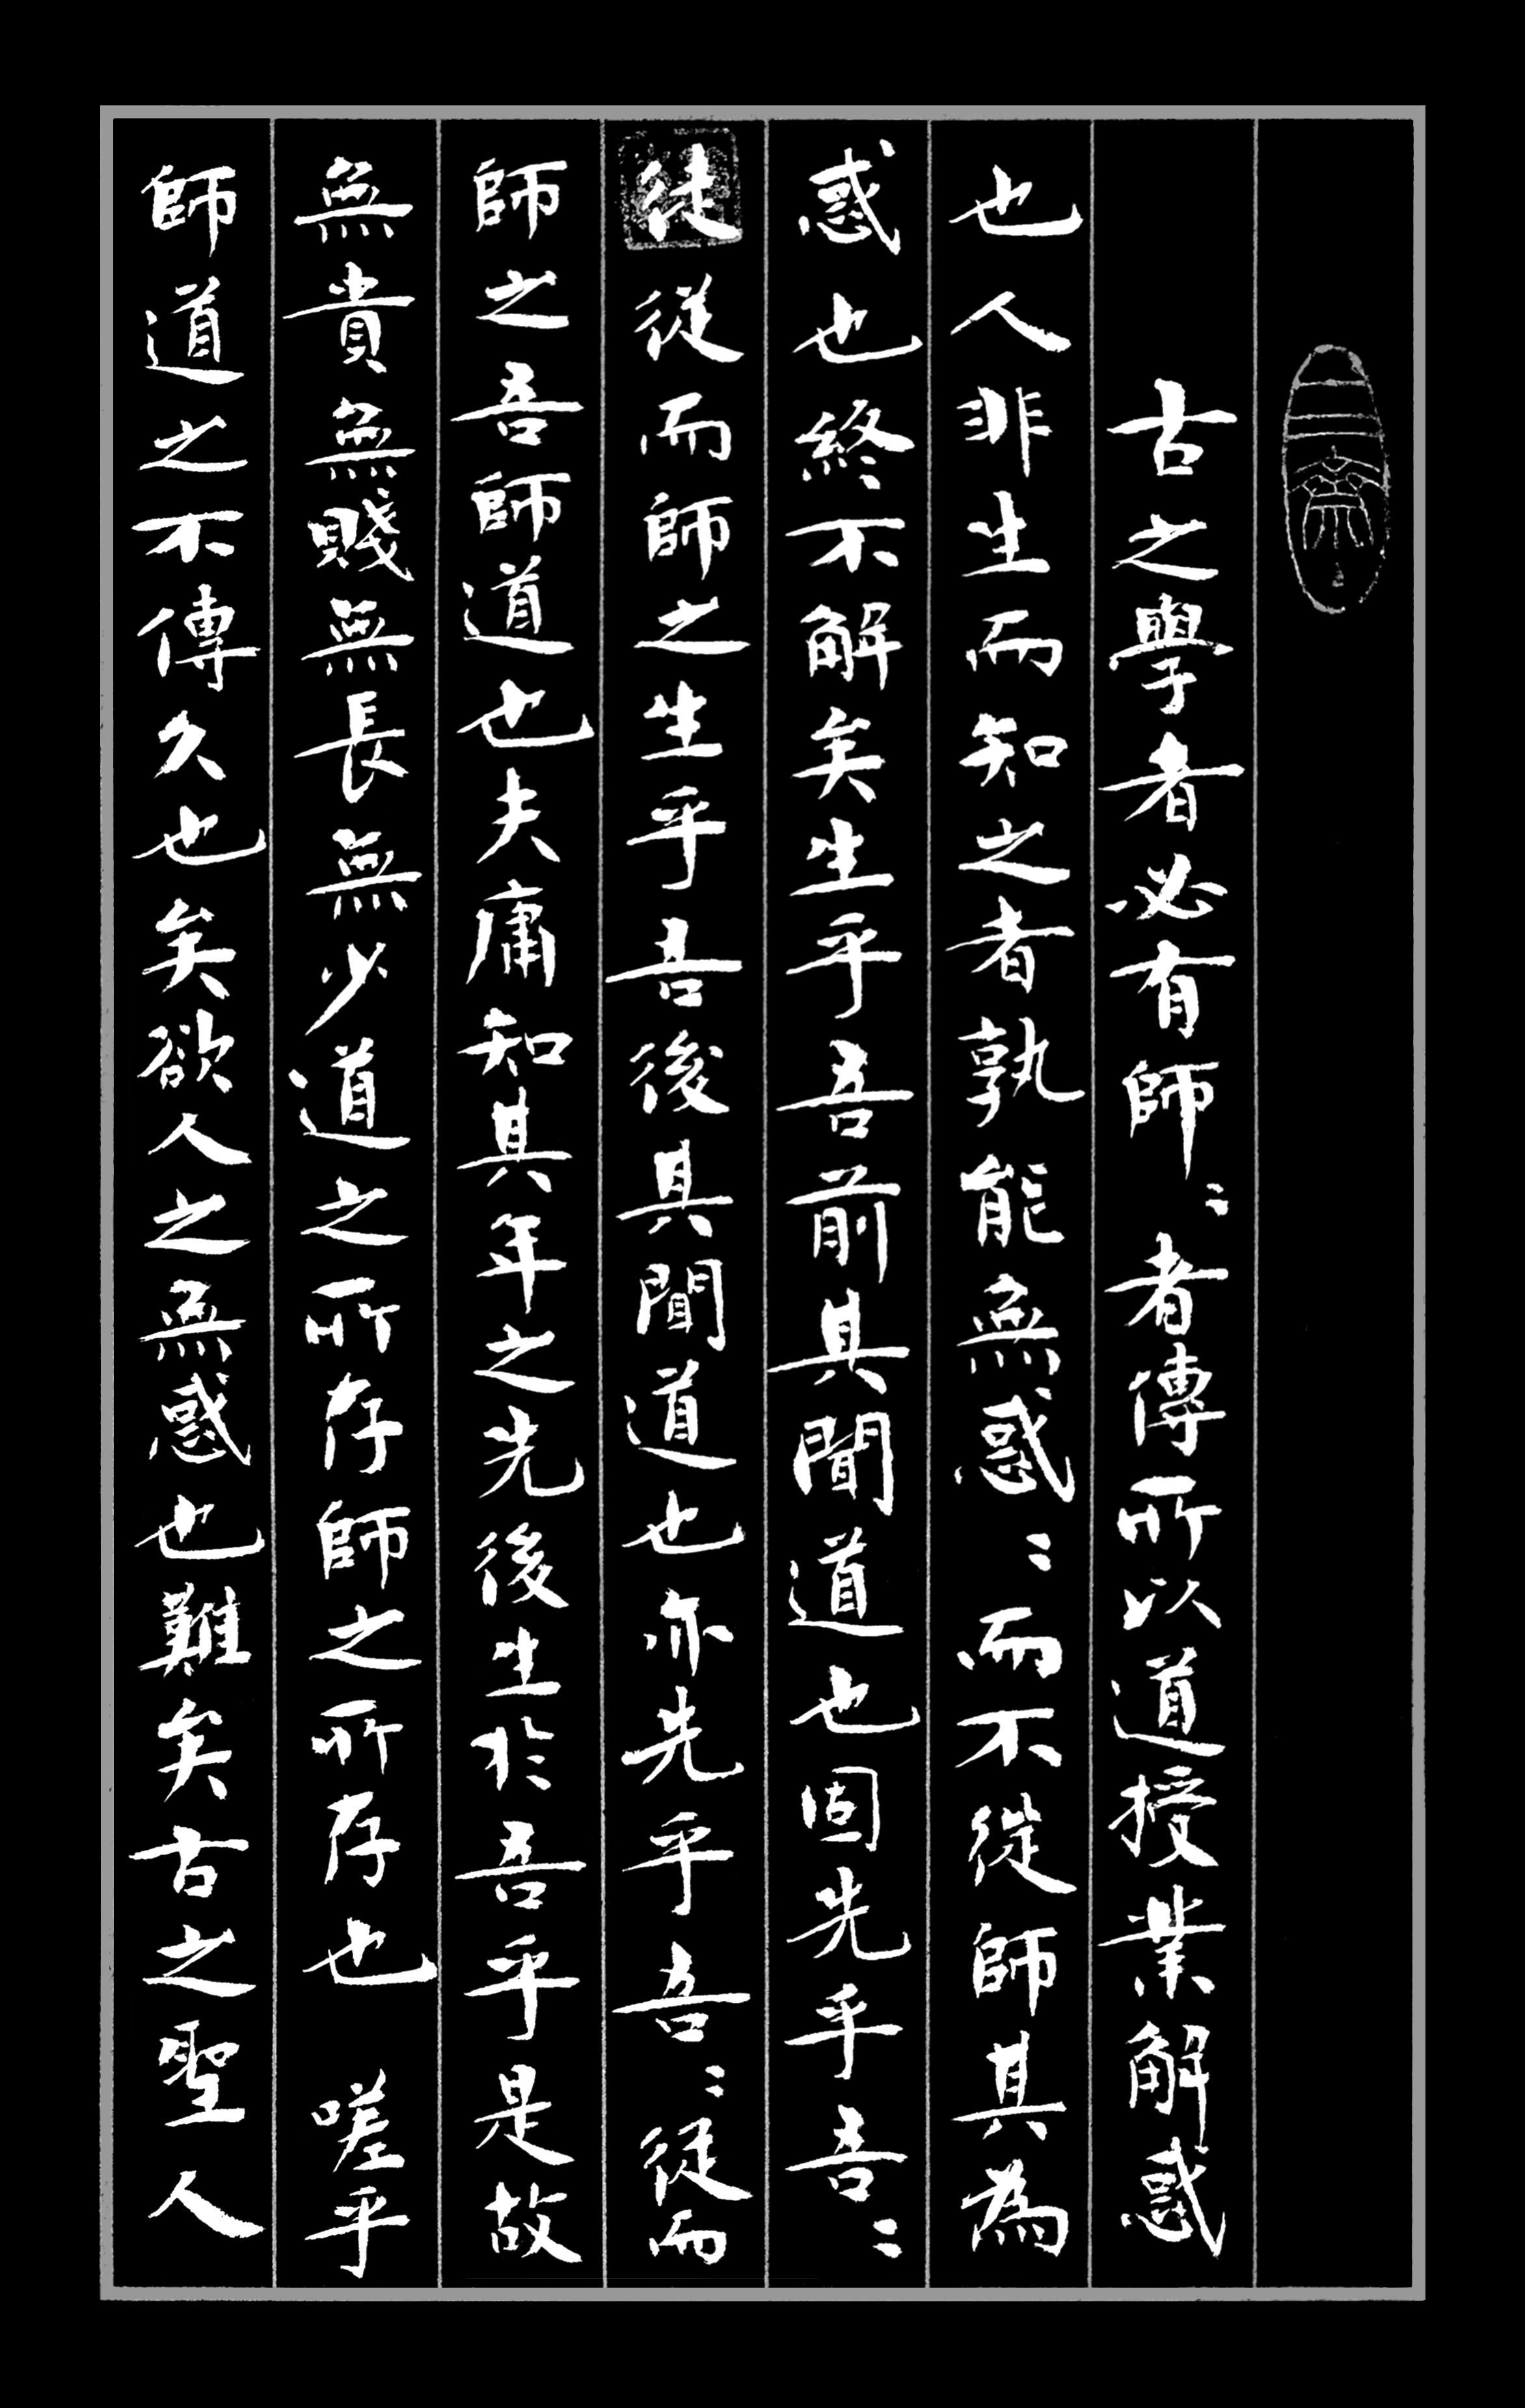 古之學者必有師〻者傳所以道授業解惑
也人非生而知之者孰能無惑〻而不從師其為
惑也終不解矣生乎吾前其聞道也固先乎吾〻
徒從而師之生乎吾後其聞道也亦先乎吾〻從而
師之吾師道也夫庸知其年之先後生於吾乎是故
無貴無賤無長無少道之所存師之所存也 嗟乎
師道之不傳久也矣欲人之無惑也難矣古之聖人